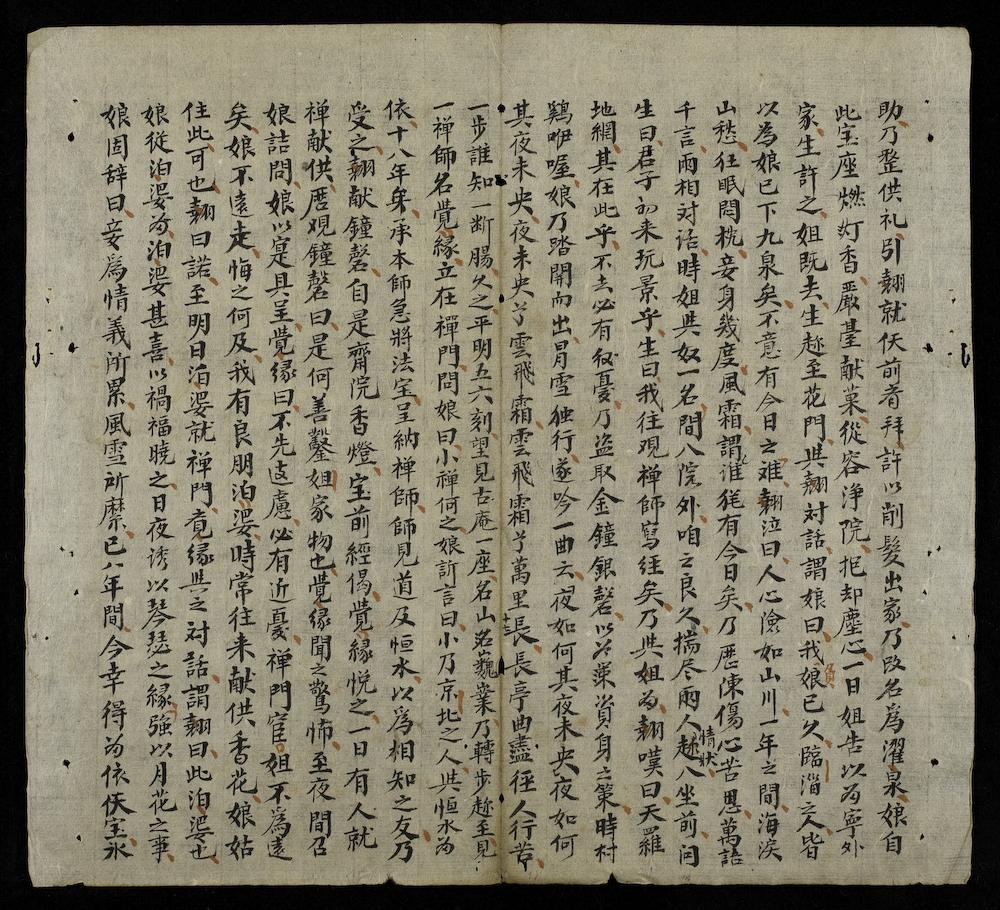 助乃整供礼引翹就佅前者拜許以削髮出家乃改名為濯泉娘自
此宝座燃灯香嚴基献菓從容浄院拒却塵心一日姐告以为寧外
家生許之姐既去生趂至花門與翹対話謂娘曰我娘已久臨淄之人皆
以為娘已下九泉矣不意有今日之难翹泣曰人心險如山川一年之間海涙
山愁狂眠悶枕妾身幾度風霜謂誰能有今日矣乃歷陳傷心苦思萬語
千言兩相対话時姐與奴一名間八院外咱之良久揣尽兩人情狀趂八坐前问
生曰君子初来玩景乎生曰我往覌禅師寫経矣乃與姐为翹嘆曰天羅
地網其在此乎不去必有後憂乃盗取金鐘銀磬以为業資身之策時村
鷄咿喔娘乃踏開而出冐雪独行遂吟一曲云夜如何其夜未央夜如何
其夜未央夜未央兮雲飛霜雲飛霜兮萬里長長亭曲盡徑人行苦
一步誰知一断腸久之平明五六刻望見古庵一座名山名巍業乃轉步趂至見
一禅師名覺緣立在禪門問娘曰小禅何之娘訴言曰小乃京北之人與恒水为
依十八年矣承本師急將法宝呈納禅師師見道及恒水以為相知之友乃
受之翹献鐘磬自是齋院香燈宝前經偈覺緣悦之一日有人就
禅献供歷覌鐘磬曰是何善鑿姐家物也覺緣聞之驚怖至夜間召
娘詰問娘以寔具呈覺緣曰不先这慮必有近憂禅門宦姐不為遠
矣娘不遠走悔之何及我有良朋泊婆時常往来献供香花娘姑
住此可也翹曰諾至明日泊婆就禅門覓緣與之対話謂翹曰此泊婆也
娘從泊婆为泊婆甚喜以禍福曉之日夜诱以琴瑟之緣強以月花之事
娘固辞曰妾為情義所累風雪所縻已八年間今幸得为依佅宝永